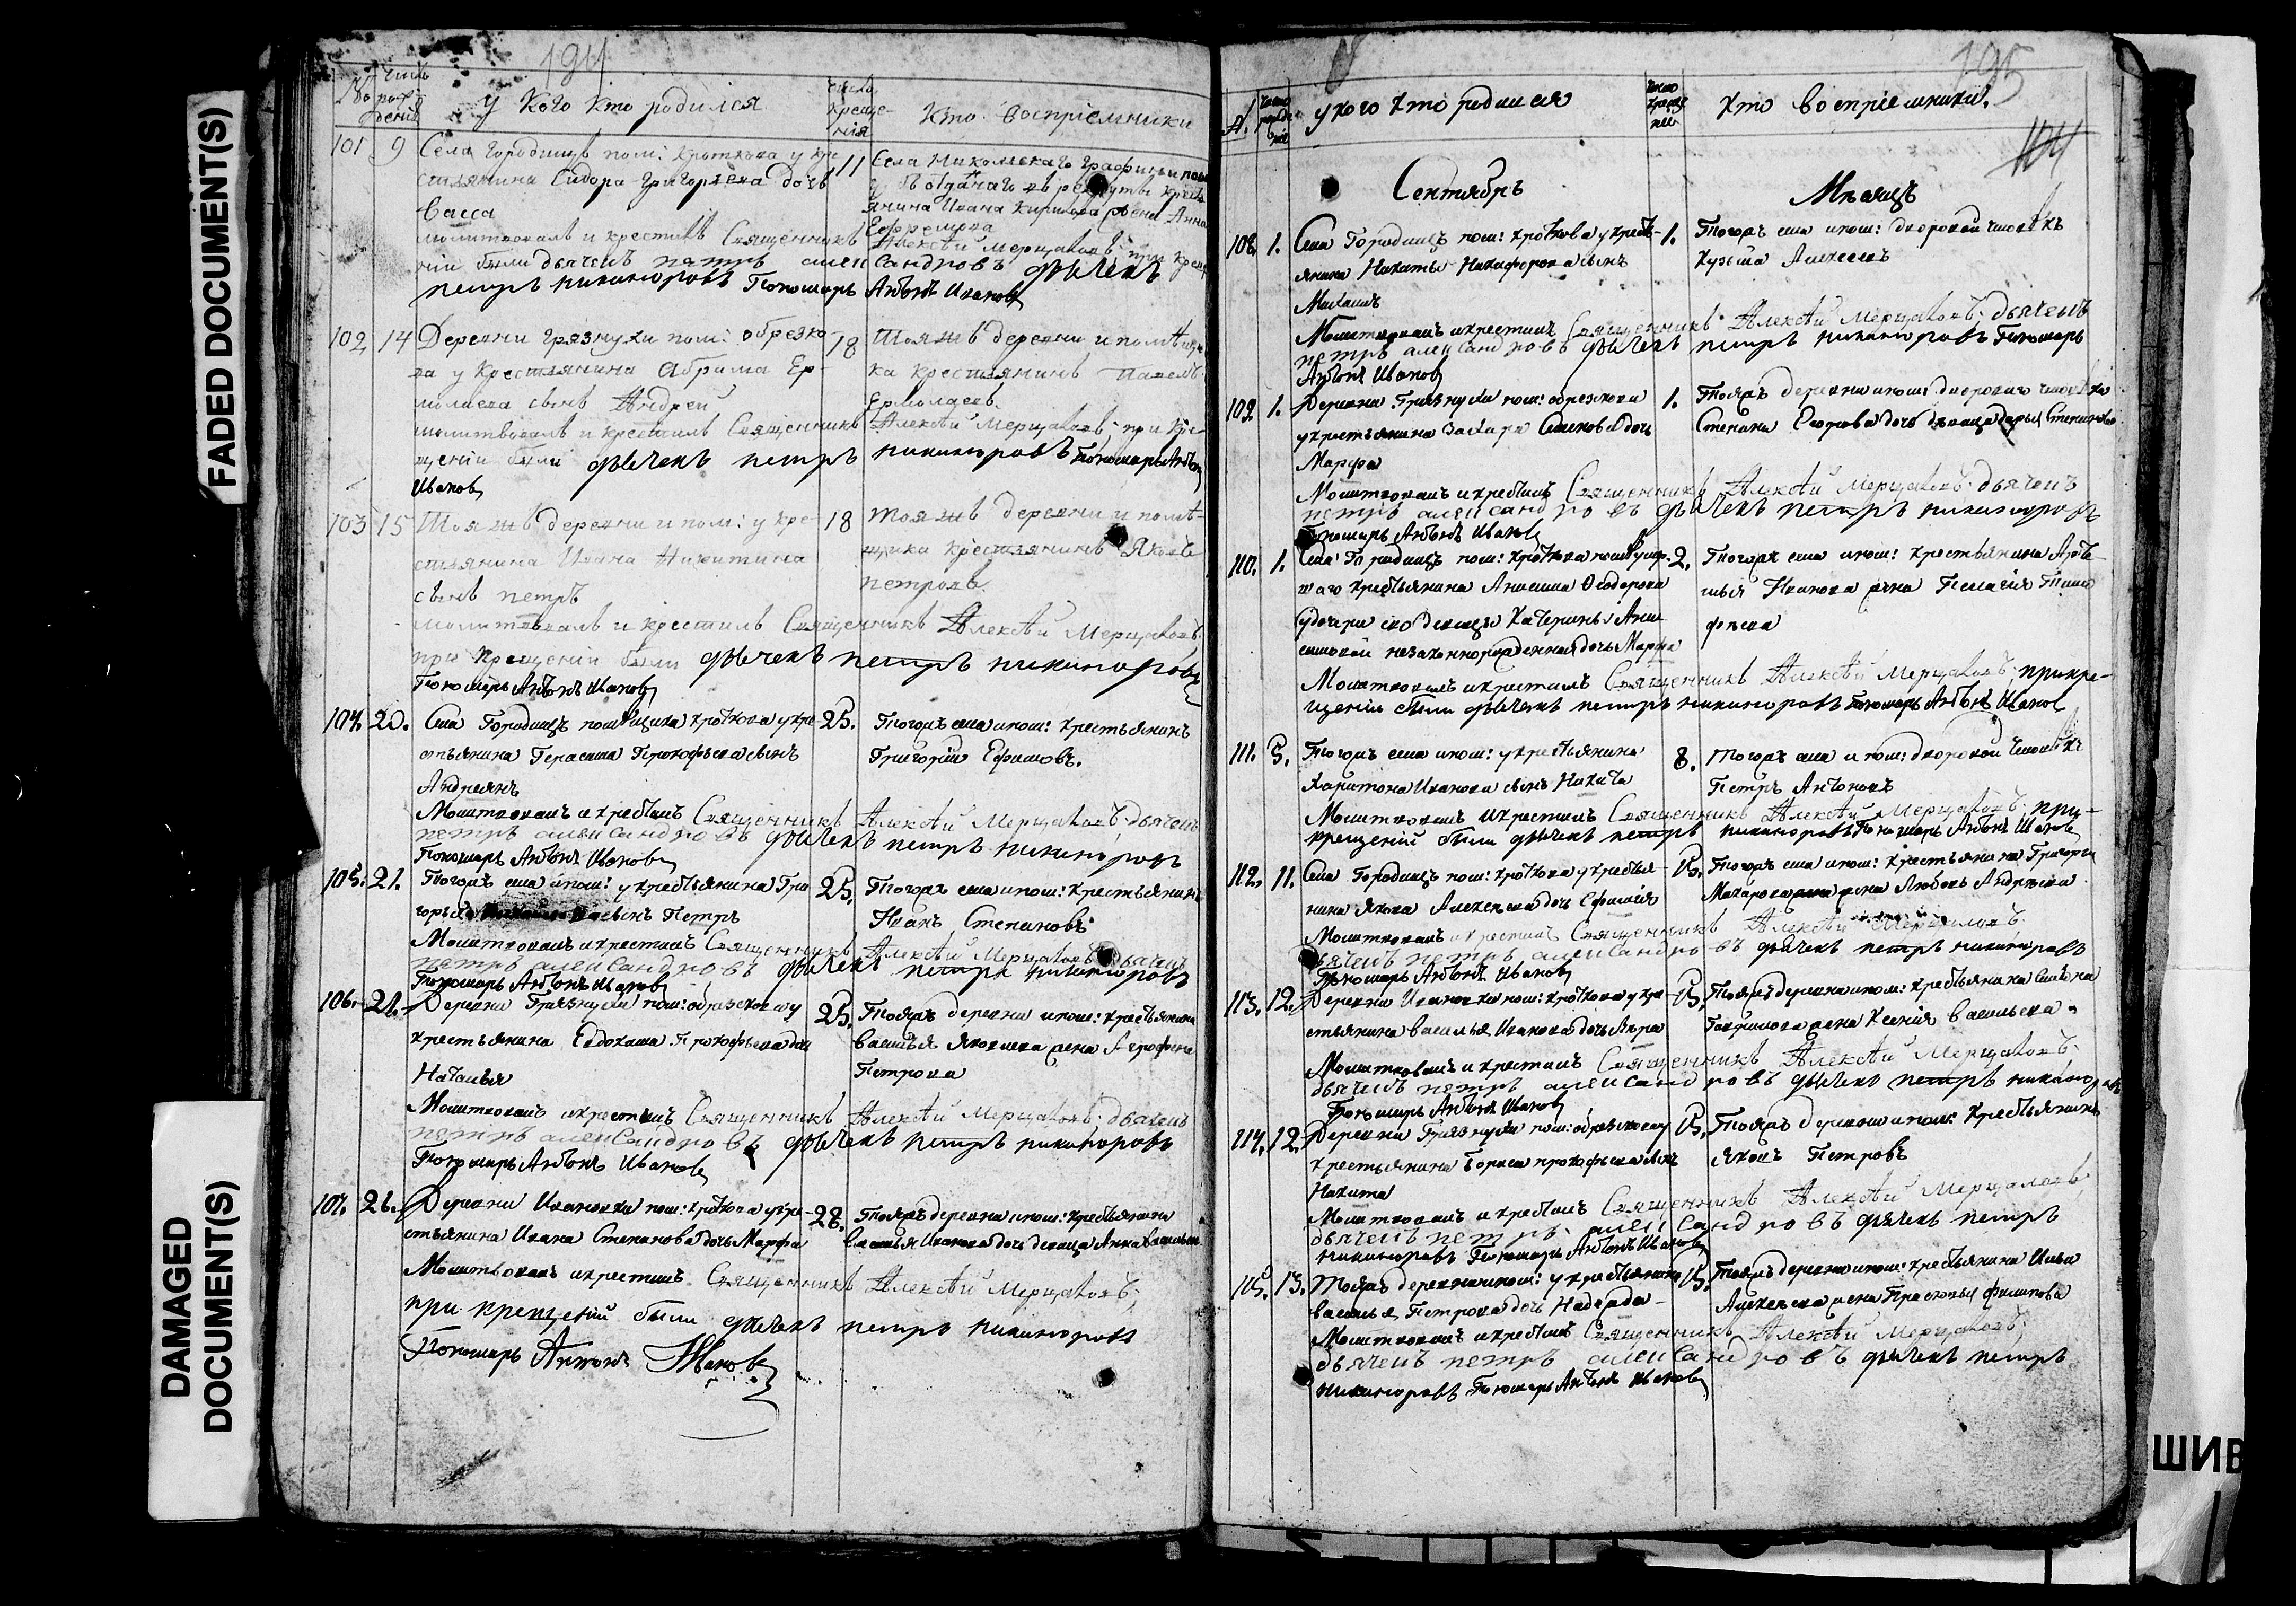 FADED DOCUMENT(S)
DAMAGED
DOCUMENT(S)
194
№
число
рож-
дения
У кого кто родился
число
креще-
ния
Кто восприемники
101 9 Села Городищъ пом: Кроткова у кре
стьянина Сидора Григорьева дочь
Васса
11 Села Никольскаго графини
отданаго въ рекруты кресть
янина Ивана Кирилова жена Анна
Ефремова
молитвовалъ и крестилъ Священникъ Алексѣй Мерцаловъ при креще
нии были дьяченъ петръ александровъ дьячекъ
петръ никиноровъ Пономарь Антонъ Ивановъ
102 14 Деревни Грязнухи пом: обрезко
ва у крестьянина Абрама Ер-
молаева сынъ Андрей
18 Тояжъ деревни и помѣщи
ка крестьянинъ Павелъ
Ермолаевъ
молитвовалъ и крестилъ Священникъ Алексѣй Мерцаловъ при кре-
щении были дьячекъ петръ никиноровъ Пономарь Антонъ
Ивановъ
103 15 Тояжъ деревни и пом: у кре-
стьянина Ивана Никитина
сынъ петръ
18 Тояжъ деревни и помѣ-
щика крестьянинъ Яковъ
петровъ
молитвовалъ и крестилъ Священникъ Алексѣй Мерцаловъ
при крещении были дьячекъ петръ никиноровъ
Пономарь Антонъ Ивановъ
104. 20. Села Городищъ помѣщика Кроткова у кре
стьянина Герасима Прокофьева сынъ
Андреянъ
25. Тогожъ села и пом: крестьянинъ
Григорий Ефимовъ.
Молитвовалъ и крестилъ Священникъ Алексѣй Мерцаловъ дьяченъ
петръ александровъ дьячекъ петръ никиноровъ
Пономарь Антонъ Ивановъ
105. 21. Тогожъ села и пом: у крестьянина Гри
горья сынъ Петръ
25. Тогожъ села и пом: крестьянинъ
Иванъ Степановъ
Молитвовалъ и крестилъ Священникъ Алексѣй Мерцаловъ дьяченъ
петръ александровъ дьячекъ петръ никиноровъ
Пономарь Антонъ Ивановъ
106. 21. Деревни Грязнухи пом: обрезкова у
крестьянина Евдокима Прокофьева дочь
Наталья
25. Тояжъ деревни и пом: крестьянина
Василья Яковлева жена
Петрова
Молитвовалъ и крестилъ Священникъ Алексѣй Мерцаловъ дьяченъ
петръ александровъ дьячекъ петръ никиноровъ
Пономарь Антонъ Ивановъ
107. 26. Деревни Ивановки пом: Кроткова у кре-
стьянина Ивана Степанова дочь Марфа
28. Тояжъ деревни и пом: крестьянина
Василья Иванова дочь девица Анна Васильева
Молитвовалъ и крестилъ Священникъ Алексѣй Мерцаловъ
при крещений были дьячекъ петръ никиноровъ
Пономарь Антонъ Ивановъ
195
104
№.
число
рожде
ния
у кого кто родился
число
креще
ния
кто восприемники.
Сентябрь Мѣсяцъ
108. 1. Села Городищъ пом: Кроткова у кресть-
янина Никиты Никифорова сынъ
Михаилъ
1. Тогожъ села и пом: дворовой человѣкъ
Кузьма Алексеевъ
Молитвовалъ и крестилъ Священникъ Алексѣй Мерцаловъ дьяченъ
петръ александровъ дьячекъ петръ никиноровъ Пономарь
Антонъ Ивановъ
109. 1. Деревни Грязнухи пом: обрезкова
у крестьянина Захара Семенова дочь
Марфа
1. Тояжъ деревни и пом: двороваго человѣка
Степана Егорова дочь девица Дарья Степанова
Молитвовалъ и крестилъ Священникъ Алексѣй Мерцаловъ дьяченъ
петръ александровъ дьячекъ петръ никиноровъ
Пономарь Антонъ Ивановъ
110. 1. Села Городищъ пом: Кроткова
крестьянина Анисима Федорова
у дочери ево девицы Катерины Ани
симовой незаконнорожденная дочь Марфа
2. Тогожъ села и пом: крестьянина
Иванова жена Пелагия Тимо
феева
Молитвовалъ и крестилъ Священникъ Алексѣй Мерцаловъ при кре-
щении были дьячекъ петръ никиноровъ Пономарь Антонъ Ивановъ
111. 5. Тогожъ села и пом: у крестьянина
Харитона Иванова сынъ Никита
8. Тогожъ села и пом: дворовой человѣкъ
Петръ Антоновъ
Молитвовалъ и крестилъ Священникъ Алексѣй Мерцаловъ при-
крещений были дьячекъ петръ никиноровъ Пономарь Антонъ Ивановъ
112. 11. Села Городищъ пом: Кроткова у кресть
янина Якова Алексеева дочь Ефимия
15. Тогожъ села и пом: крестьянина Григорья
Макарова жена Любовь Андреева
Молитвовалъ и крестилъ Священникъ Алексѣй Мерцаловъ
дьяченъ петръ александровъ дьячекъ петръ никиноровъ
Пономарь Антонъ Ивановъ
113. 12. Деревни Ивановки пом: Кроткова у кре-
стьянина Василья Иванова дочь Вѣра
15. Тояжъ деревни и пом: крестьянина Семена
Гаврилова жена Ксения Васильева
Молитвовалъ и крестилъ Священникъ Алексѣй Мерцаловъ
дьяченъ петръ александровъ дьячекъ петръ никиноровъ
Пономарь Антонъ Ивановъ
114. 12. Деревни Грязнухи пом: обрезкова у
крестьянина Бориса прокофьева сынъ
Никита
15. Тояжъ деревни и пом: крестьянинъ
Яковъ Петровъ
Молитвовалъ и крестилъ Священникъ Алексѣй Мерцаловъ
дьяченъ петръ александровъ дьячекъ петръ
никиноровъ Пономарь Антонъ Ивановъ
115. 13. Тояжъ деревни и пом: у крестьянина
Василья Петрова дочь Надежда
15. Тояжъ деревни и пом: крестьянина Ильи
Алексеева жена Прасковья Филипова
Молитвовалъ и крестилъ Священникъ Алексѣй Мерцаловъ
дьяченъ петръ александровъ дьячекъ петръ
никиноровъ Пономарь Антонъ Ивановъ
ШИВ